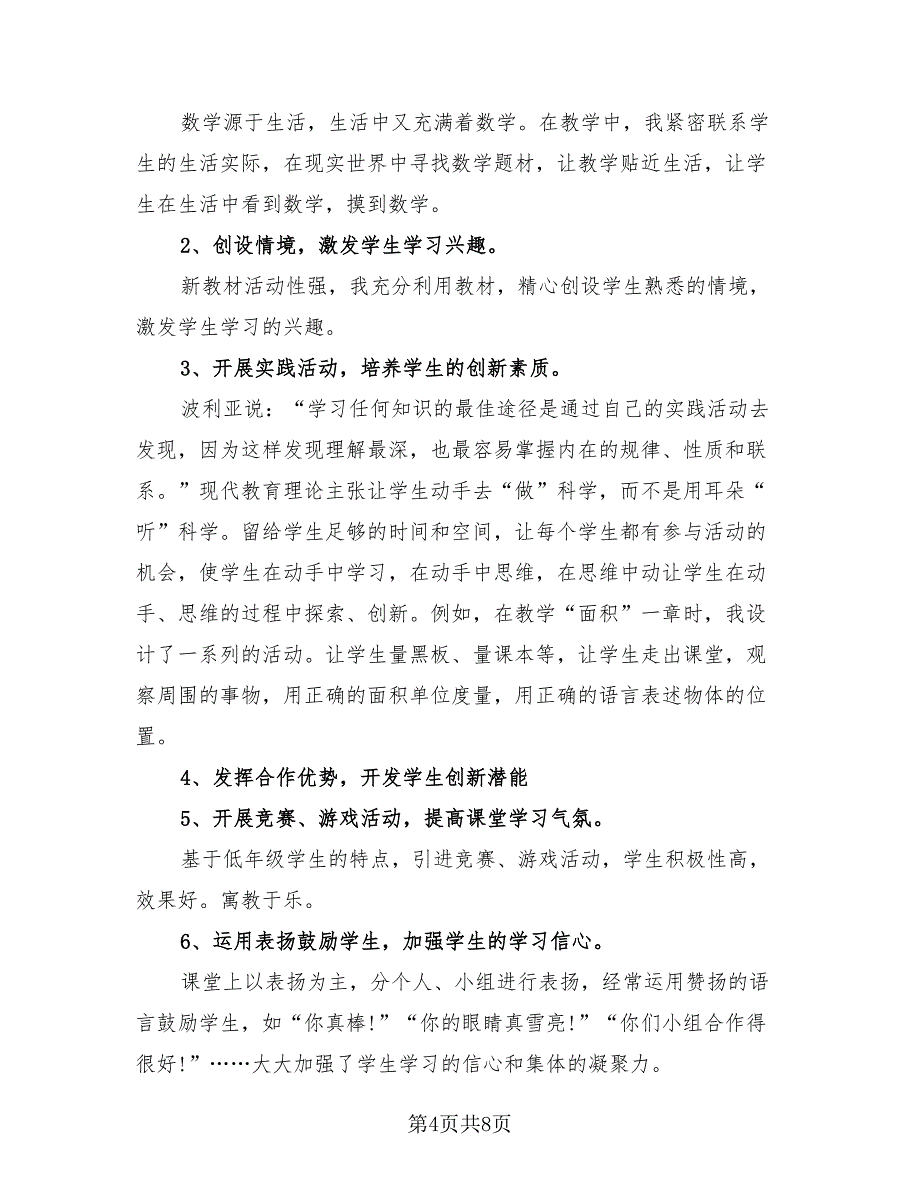 数学源于生活，生活中又充满着数学。在教学中，我紧密联系学
生的生活实际，在现实世界中寻找数学题材，让教学贴近生活，让学
生在生活中看到数学，摸到数学。
2、创设情境，激发学生学习兴趣。
新教材活动性强，我充分利用教材，精心创设学生熟悉的情境，
激发学生学习的兴趣。
3、开展实践活动，培养学生的创新素质。
波利亚说：“学习任何知识的最佳途径是通过自己的实践活动去
发现，因为这样发现理解最深，也最容易掌握内在的规律、性质和联
系。”现代教育理论主张让学生动手去“做”科学，而不是用耳朵“
听”科学。留给学生足够的时间和空间，让每个学生都有参与活动的
机会，使学生在动手中学习，在动手中思维，在思维中动让学生在动
手、思维的过程中探索、创新。例如，在教学“面积”一章时，我设
计了一系列的活动。让学生量黑板、量课本等，让学生走出课堂，观
察周围的事物，用正确的面积单位度量，用正确的语言表述物体的位
置。
4、发挥合作优势，开发学生创新潜能
5、开展竞赛、游戏活动，提高课堂学习气氛。
基于低年级学生的特点，引进竞赛、游戏活动，学生积极性高，
效果好。寓教于乐。
6、运用表扬鼓励学生，加强学生的学习信心。
课堂上以表扬为主，分个人、小组进行表扬，经常运用赞扬的语
言鼓励学生，如“你真棒!”“你的眼睛真雪亮!”“你们小组合作得
很好!”……大大加强了学生学习的信心和集体的凝聚力。
第4页共8页